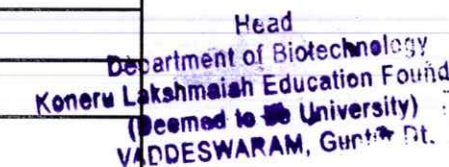 Head
Department of Biotechnology
Koneru Lakshmaiah Education Found
(Deemed to be University)
VADDESWARAM, Guntur Dt.